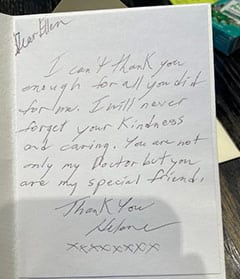 Dear Ellen
I can't thank you
enough for all you did
for me. I will never
forget your kindness
and caring. You are not
only my Doctor but you
are my special friend.
Thank You
xxxxxxxx